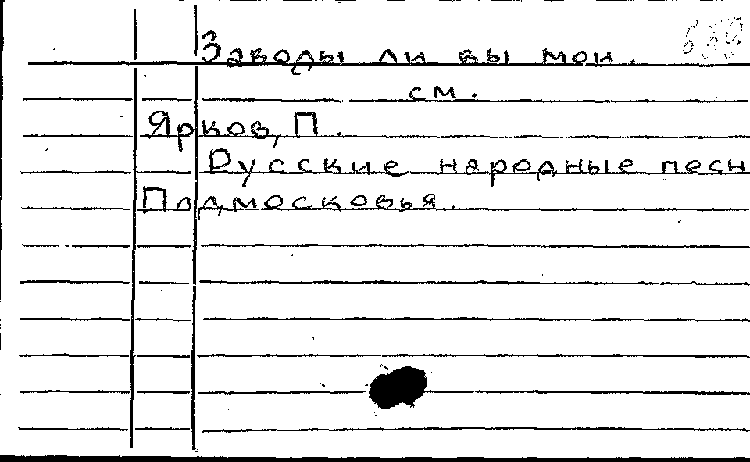 Заводы ли вы мои.
см.
Ярков, П.
Русские народные песн
Подмосковья.